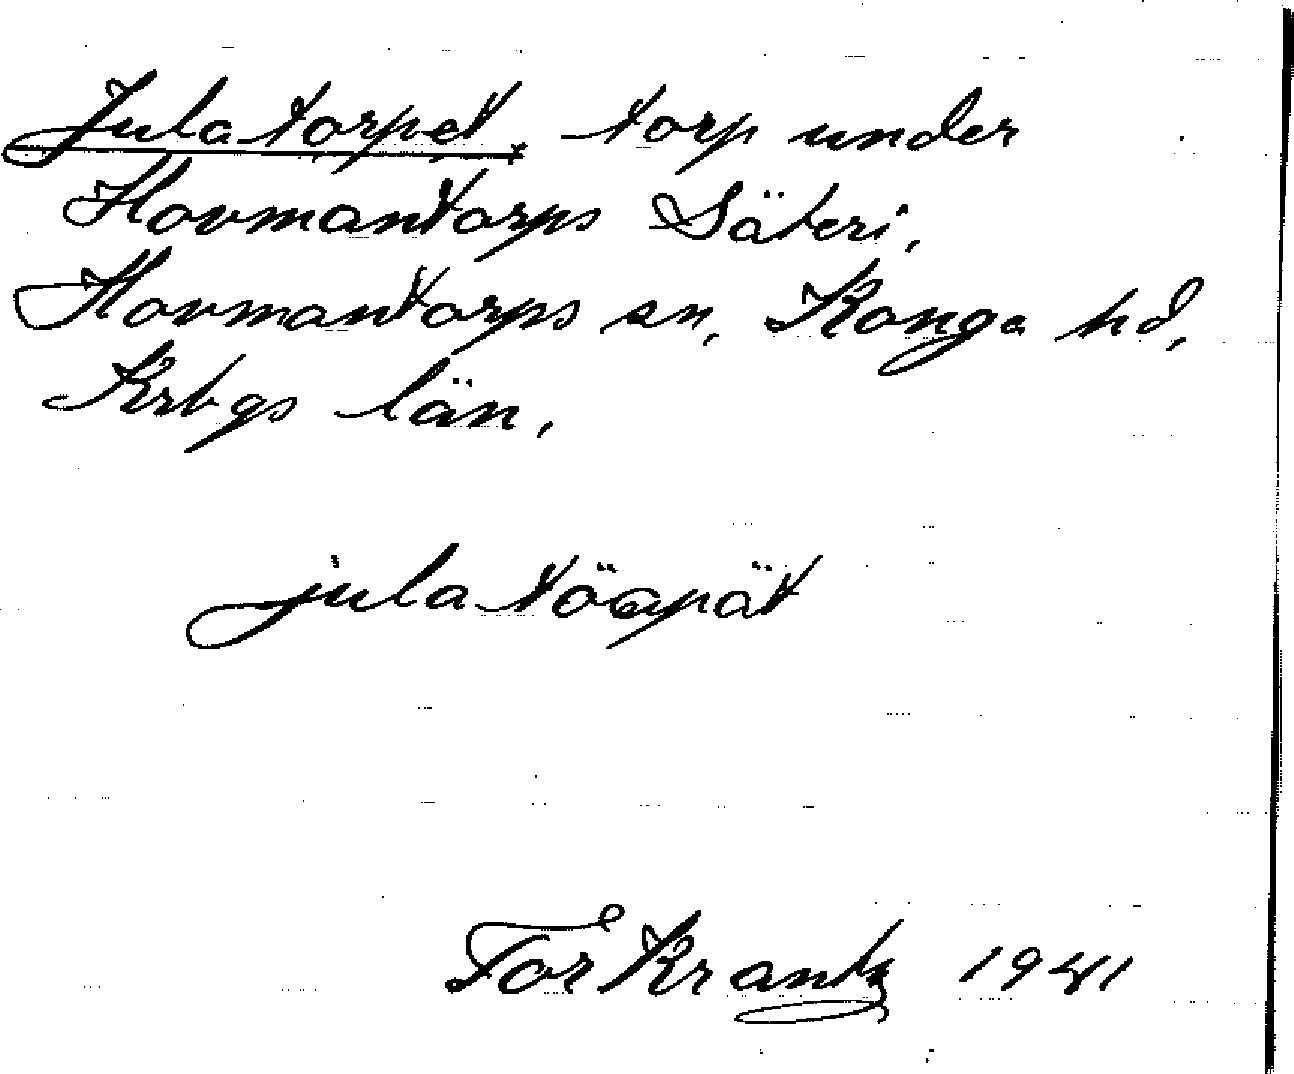 Julatorpet, torp under
Hovmantorps Säteri,
Hovmantorps sn, Konga hd,
Krbgs län,
julatöapät
Tor Krantz 1941